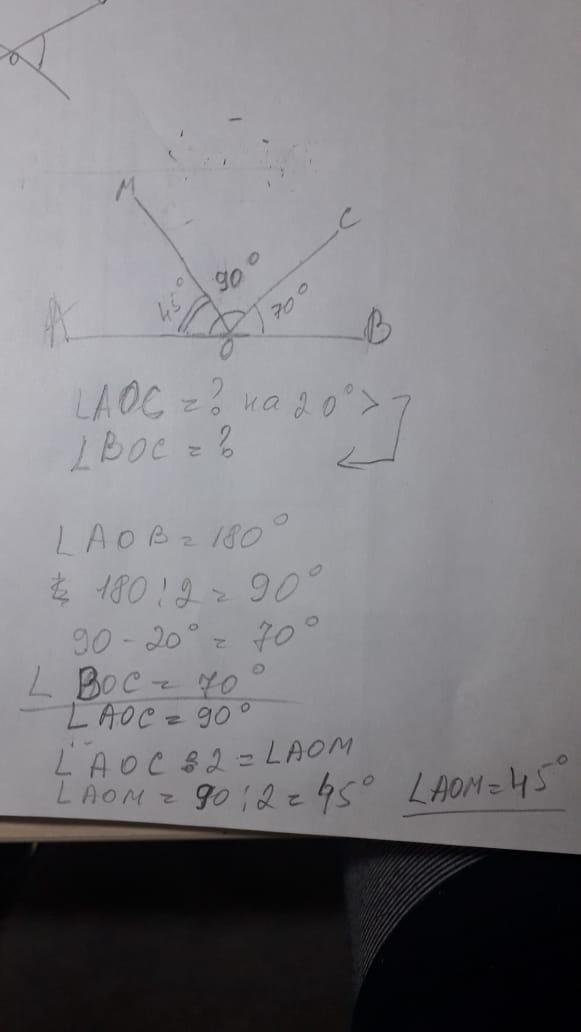 O
M
C
90°
45°
70°
A
B
O
∠AOC = ? на 20° >
∠BOC = ?
∠AOB = 180°
180 : 2 = 90°
90 - 20° = 70°
∠ BOC = 70°
∠AOC = 90°
∠AOC : 2 = ∠AOM
∠AOM = 90 : 2 = 45° ∠AOM = 45°